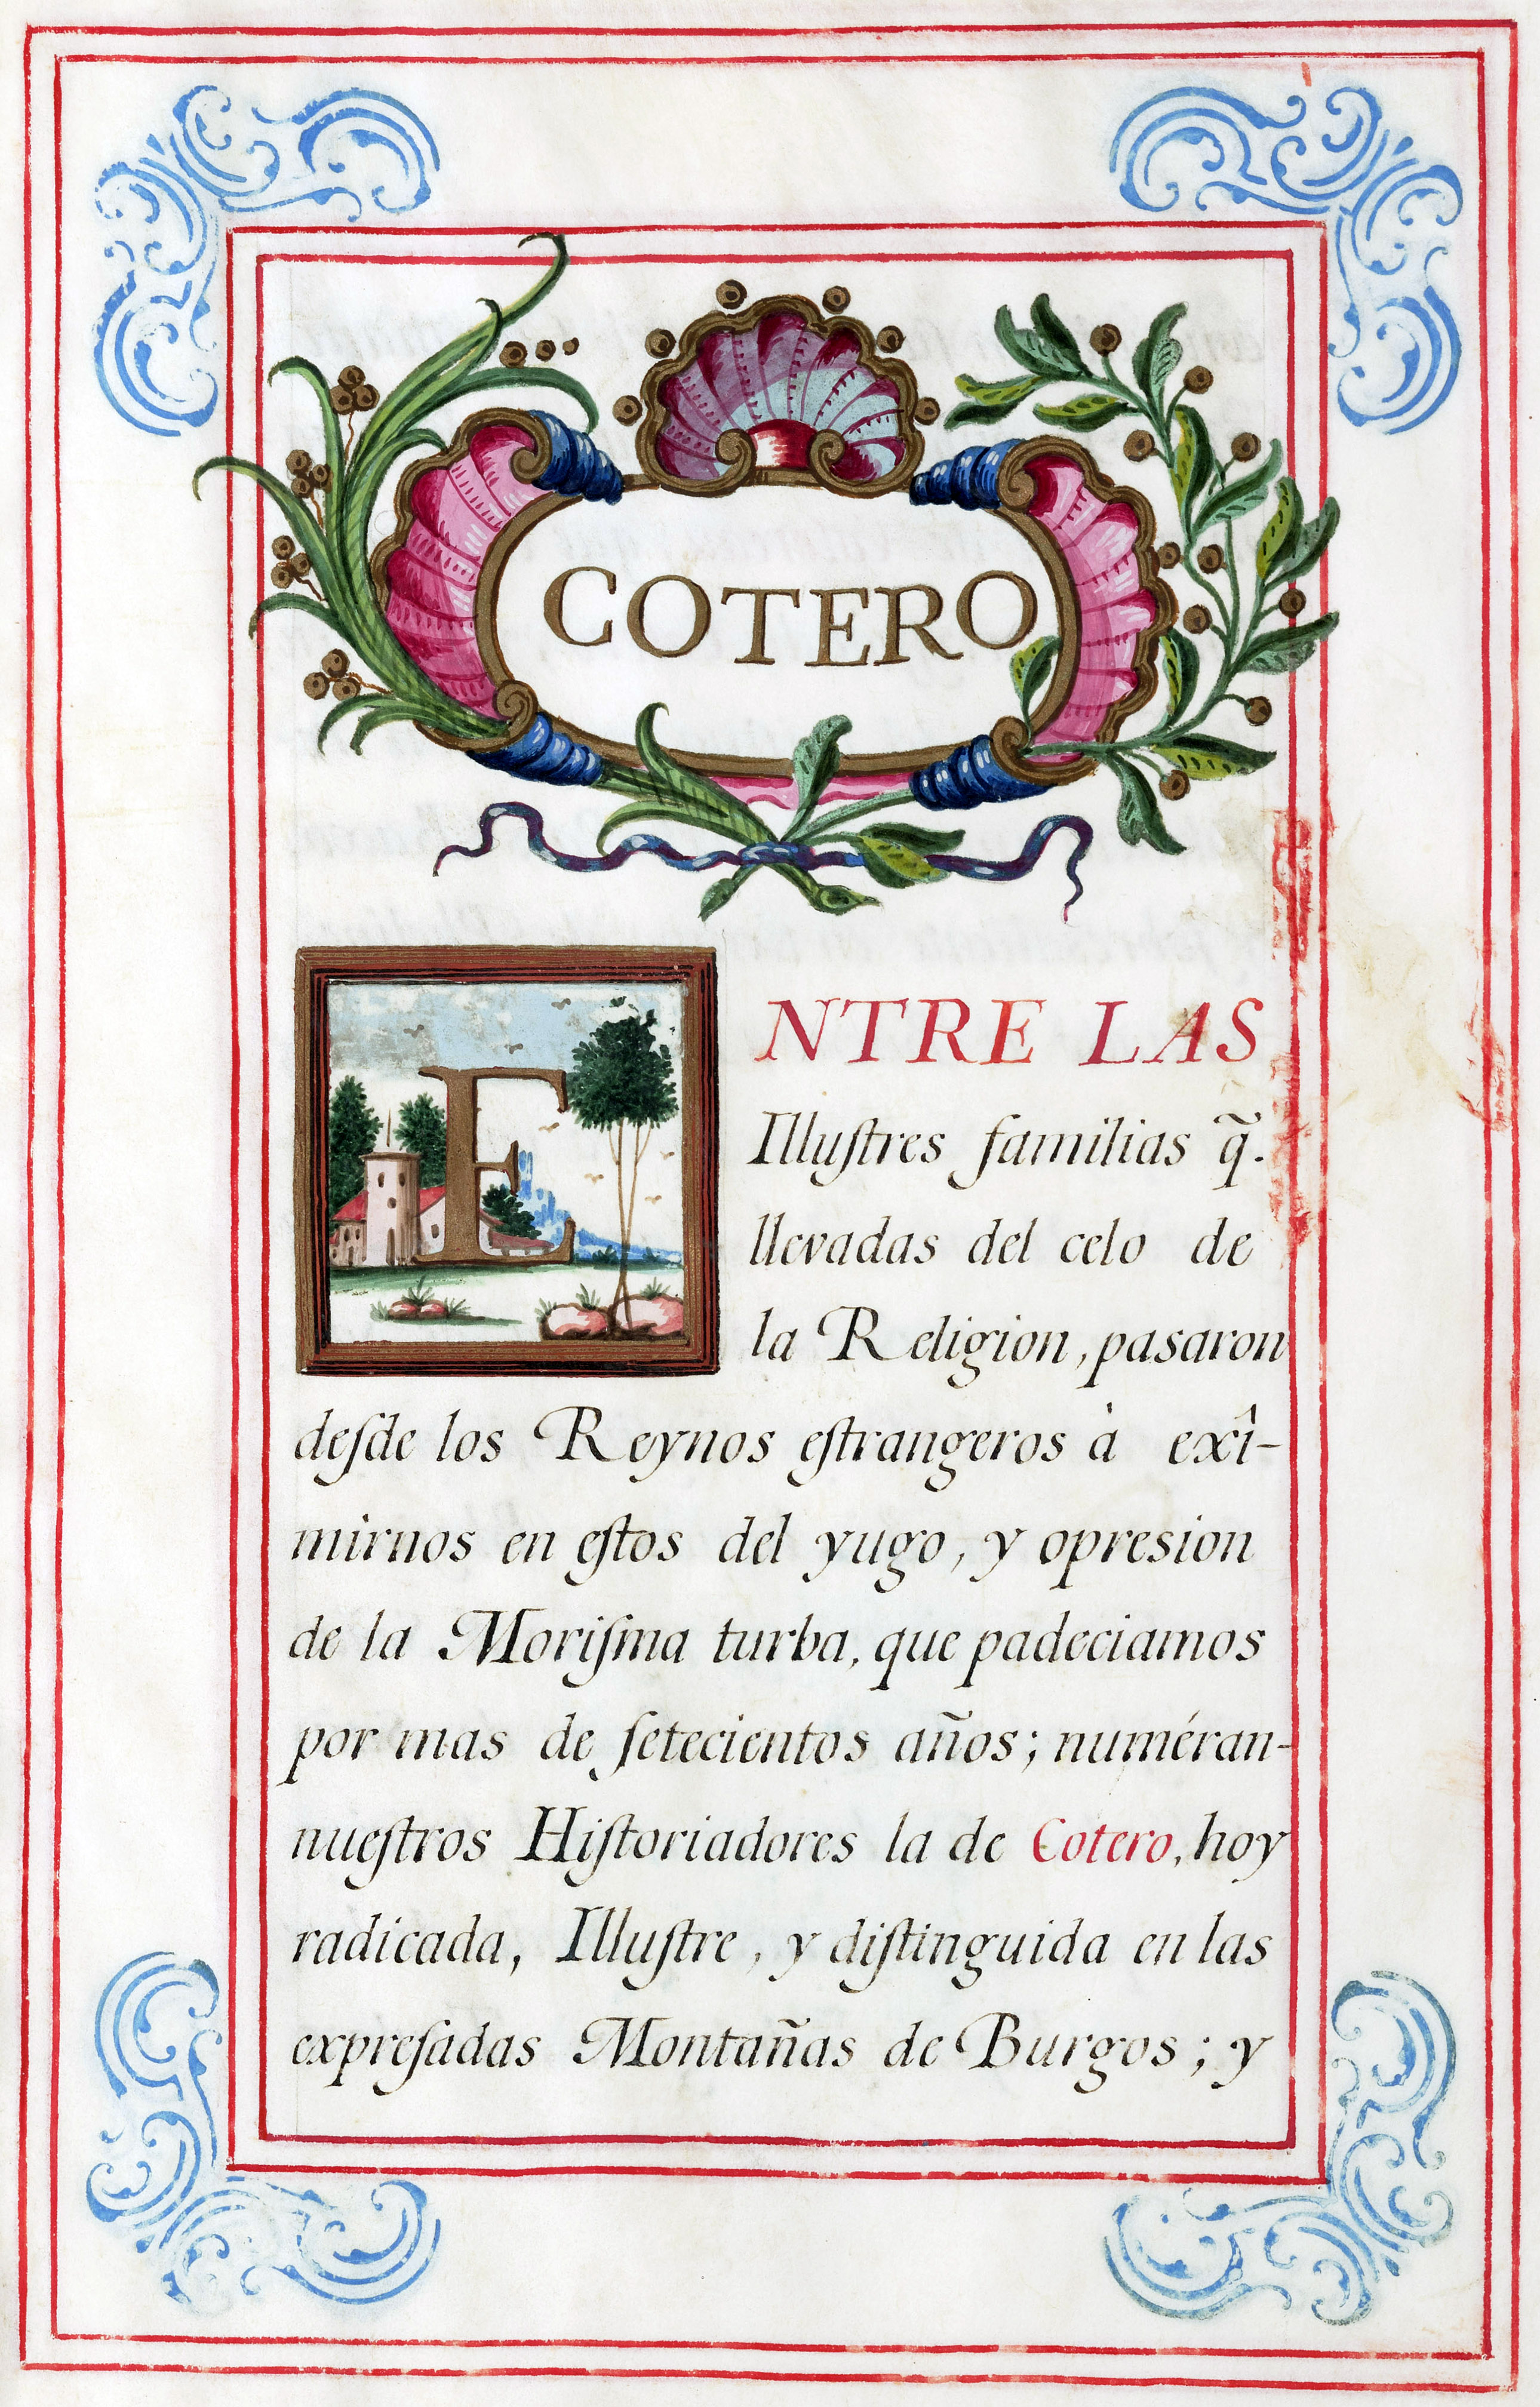 COTERO
ENTRE LAS
Illuſtres familias q̃.
llevadas del celo de
la Religion, pasaron
deſde los Reynos eſtrangeros à exî-
mirnos en eſtos del yugo, y opresion
de la Moriſma turba, que padeciamos
por mas de ſetecientos años; numéran-
nueſtros Hiſtoriadores la de Cotero, hoy
radicada, Illuſtre, y diſtinguida en las
expreſadas Montañas de Burgos; y